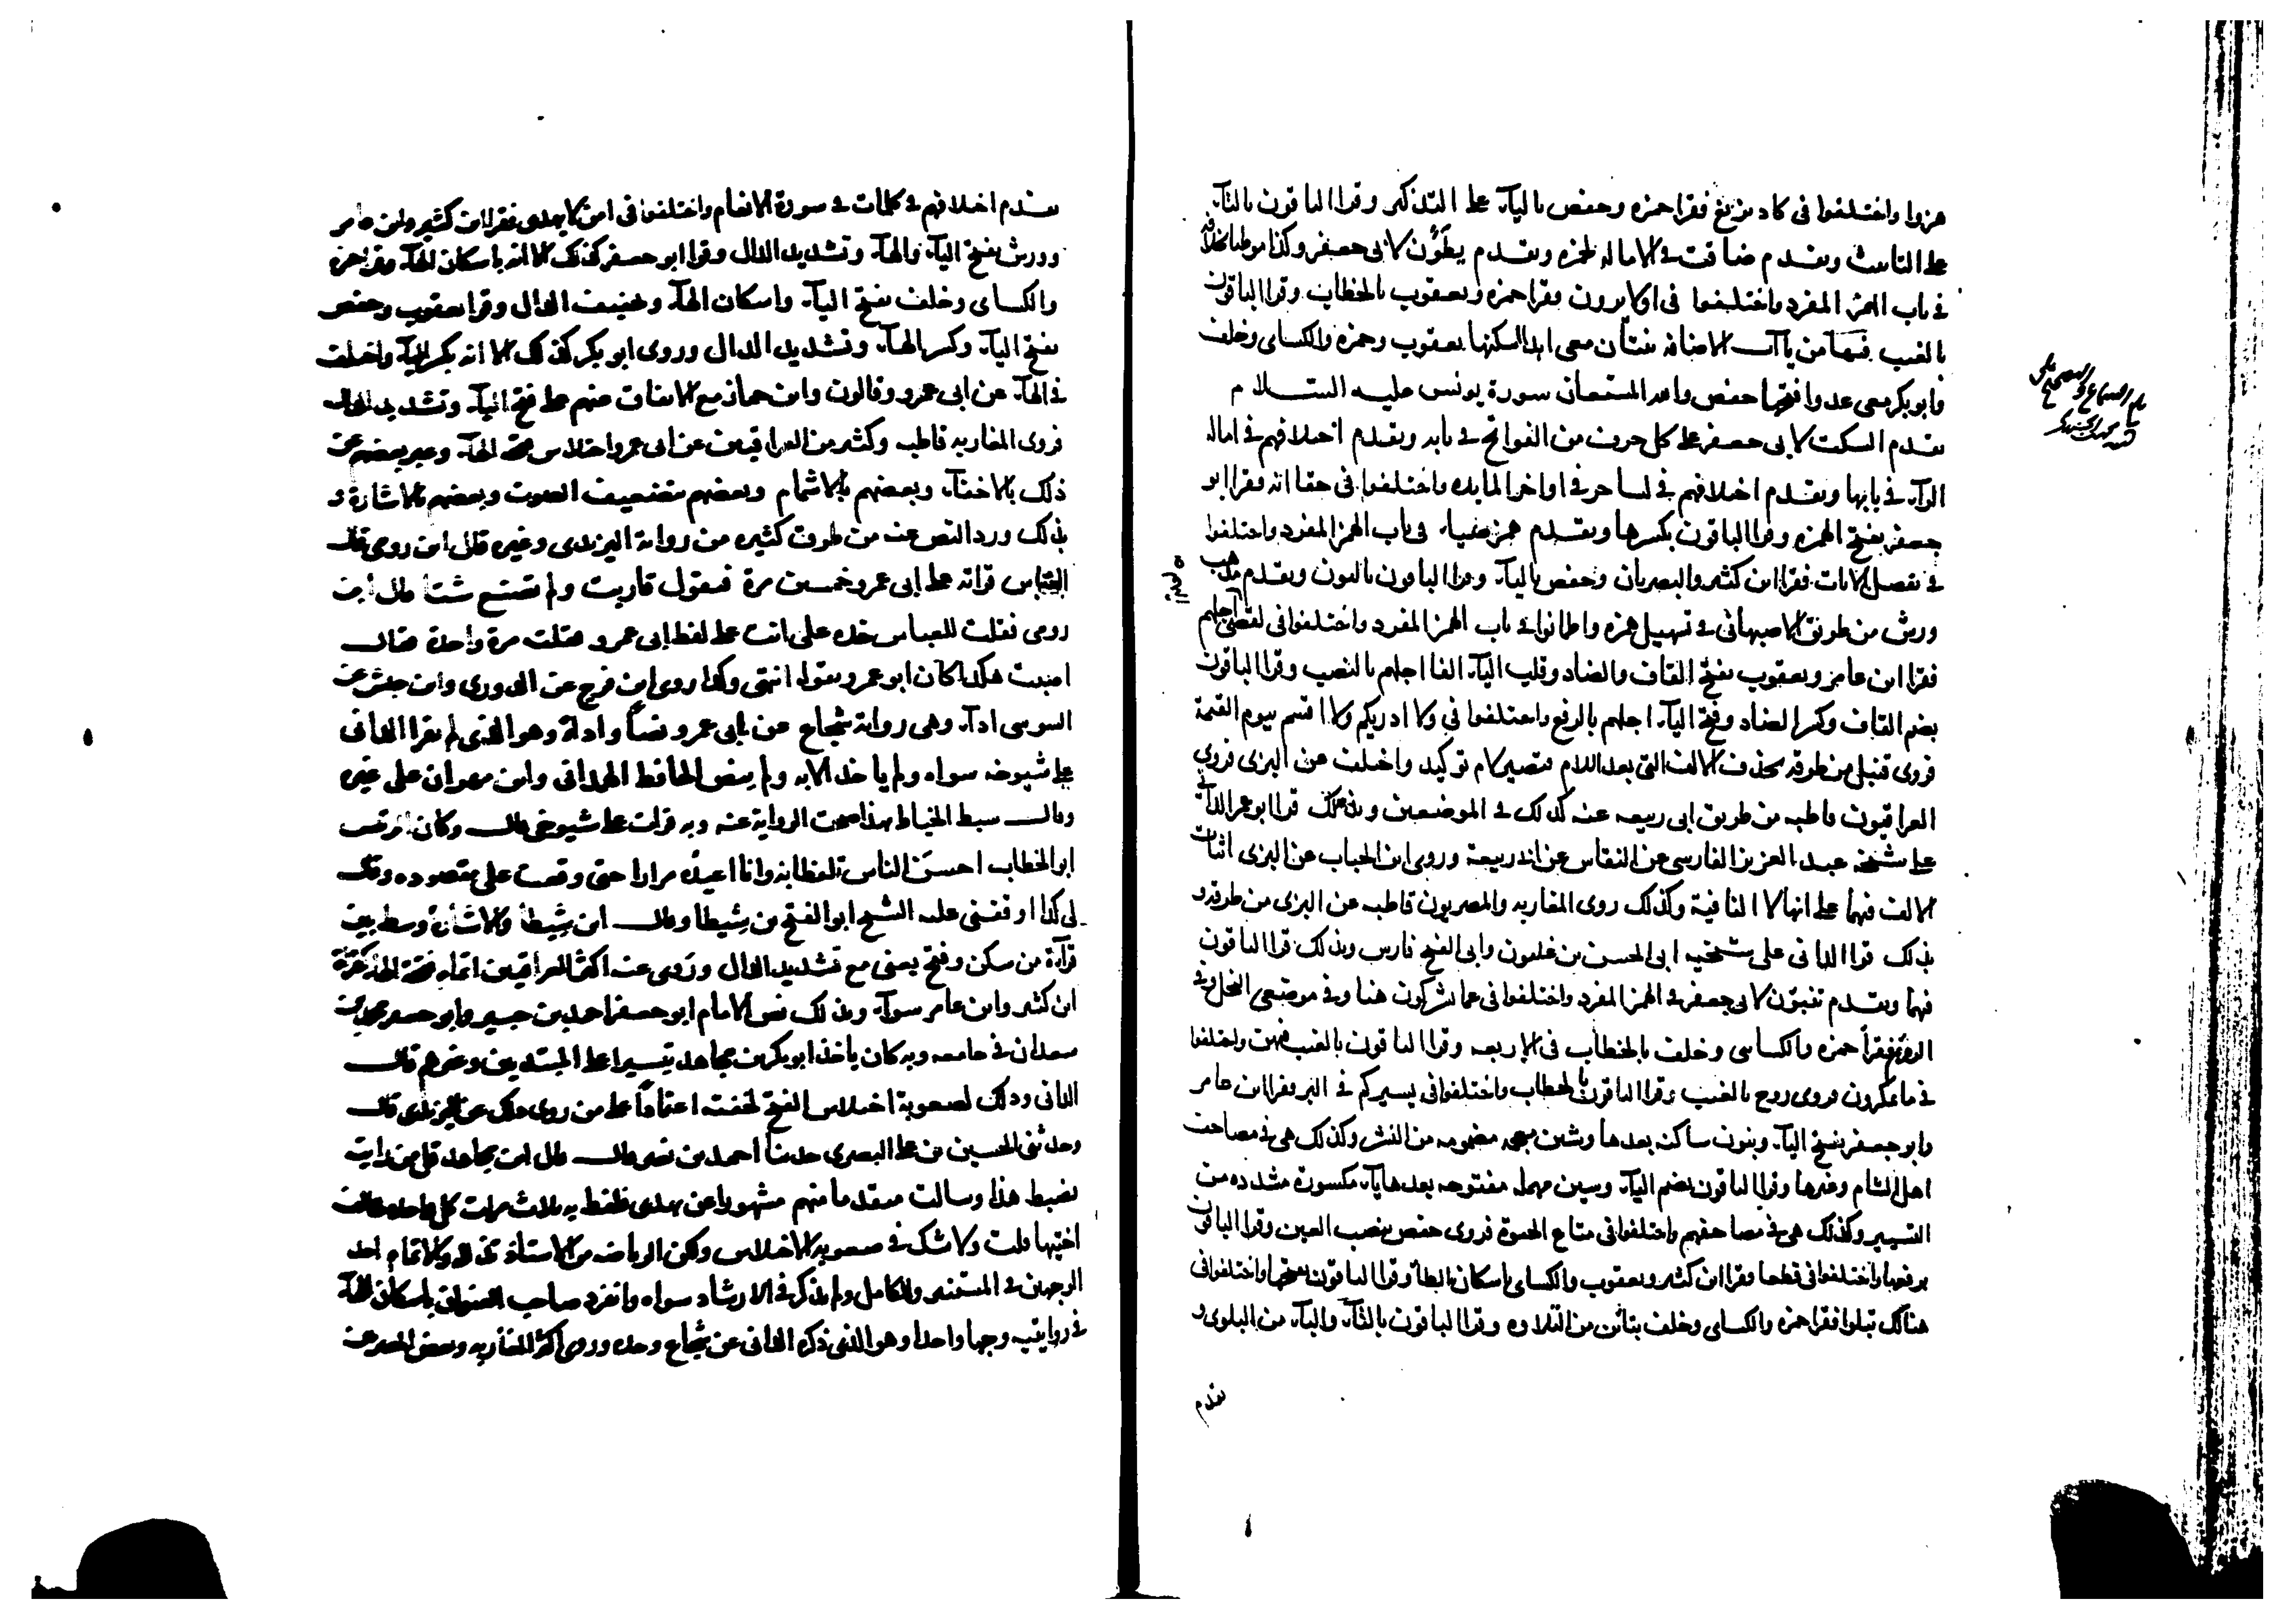 هزوا واختلفوا فى كاد يزيغ فقرا حمزه وحفص باليآء على التذكير وقرا الباقون بالتآء
على التانيث وتقدم ضاقت فى الاماله لحمزه وتقدم يطؤن لابى جعفر وكذا موطيا بخلافه
فى باب الهمز المفرد واختلفوا فى اولا يرون فقرا حمزه ويعقوب بالخطاب وقرا الباقون
بالغيب فيها من يآات الاضافه ثنتان معى ابدا اسكنها يعقوب وحمزه والكساى وخلف
وابوبكر معى عدوا فتحها حفص والله المستعان سورة يونس عليه السلام
تقدم السكت لابى جعفر على كل حرف من الفواتح فى بابه وتقدم اختلافهم فى اماله
الرآء فى بابها وتقدم اختلافهم فى لساحر فى اواخر المايده واختلفوا فى حقا انه فقرا ابو
جعفر بفتح الهمزه وقرا الباقون بكسرها وتقدم همز ضيآء فى باب الهمز المفرد واختلفوا
فى نفصل الايات فقرا ابن كثير والبصريان وحفص باليآء وقرا الباقون بالنون وتقدم مذهب
ورش من طريق الاصبهانى فى تسهيل همزه واطمانوا فى باب الهمز المفرد واختلفوا فى لقضى اليهم اجلهم
فقرا ابن عامر ويعقوب بفتح القاف والضاد وقلب اليآء الفا اجلهم بالنصب وقرا الباقون
بضم القاف وكسر الضاد وفتح اليآء اجلهم بالرفع واختلفوا فى ولا ادريكم ولا اقسم بيوم القيمة
فروى قنبل من طرقه بحذف الالف التى بعد اللام فتصير لام توكيد واختلف عن البزى فروى
العراقيون قاطبه من طريق ابى ربيعه عنه كذلك فى الموضعين وبذلك قرا ابوعمرو الدانى
على شيخه عبد العزيز الفارسى عن النقاش عن ابى ربيعة وروى ابن الحباب عن البزى اثبات
الالف فيهما على انها لا النافية وكذلك روى المغاربه والمصريون قاطبه عن البزى من طرقه و
بذلك قرا الدانى على شيخيه ابى الحسن بن غلبون وابى الفتح فارس وبذلك قرا الباقون
فيهما وتقدم تنبؤن لابى جعفر فى الهمز المفرد واختلفوا فى عما يشركون هنا وفى موضعى النحل وفى
الروم فقرأ حمزه والكساى وخلف بالخطاب فى الاربعه وقرا الباقون بالغيب فيهن واختلفوا
فى ما تمكرون فروى روح بالغيب وقرا الباقون بالخطاب واختلفوا فى يسيركم فى البر فقرا ابن عامر
وابو جعفر بفتح اليآء وبنون ساكنه بعدها وشين معجمه مضمومه من النشر وكذلك هى فى مصاحف
اهل الشام وغيرها وقرا الباقون بضم اليآء وسين مهمله مفتوحه بعدها يآء مكسورة مشدده من
التسيير وكذلك هى فى مصاحفهم واختلفوا فى متاع الحيوة فروى حفص بنصب العين وقرا الباقون
برفعها واختلفوا فى قطعا فقرا ابن كثير ويعقوب والكساى باسكان الطآء وقرا الباقون بفتحها واختلفوا فى
هنالك تبلوا فقرا حمزه والكساى وخلف بتائين من التلاوه وقرا الباقون بالتآء والبآء من البلوى و
تقدم
تقدم اختلافهم فى كلمات فى سورة الانعام واختلفوا فى امن لا يهدى فقرا ابن كثير وابن عامر
وورش بفتح اليآء والهآء وتشديد الدال وقرا ابو جعفر كذلك الا انه باسكان الهآء وقرا حمزه
والكساى وخلف بفتح اليآء واسكان الهآء وتخفيف الدال وقرا يعقوب وحفص
بفتح اليآء وكسر الهآء وتشديد الدال وروى ابو بكر كذلك الا انه بكسر اليآء واختلف
فى الهآء عن ابى عمرو وقالون وابن جماز مع الاتفاق عنهم على فتح اليآء وتشديد الدال
فروى المغاربه قاطبه وكثير من العراقيين عن ابى عمرو اختلاس فتحة الهآء وعبر بعضهم عن
ذلك بالاخفآء وبعضهم بالاشمام وبعضهم بتضعيف الصوت وبعضهم بالاشارة و
بذلك ورد النص عنه من طرق كثيره من رواية اليزيدى وغيره قال ابن رومى قال
العباس قراته على ابى عمرو خمسين مرة فيقول قاربت ولم تصنع شئا قال ابن
رومى فقلت للعباس خذه على انت على لفظ ابى عمرو فقلت مرة واحدة فقال
اصبت هكذا كان ابو عمرو يقوله انتهى وكذا روى ابن فرح عن الدورى وابن حبش عن
السوسى ادآء وهى رواية شجاع عن ابى عمرو نصاً وادآءً وهو الذى لم يقرا الدانى
على شيوخه سواه ولم ياخذ الا به ولم ينص الحافظ الهمدانى وابن مهران على غيره
وقال سبط الخياط بهذا صحت الرواية عنه وبه قرات على شيوخى قال وكان الرئيس
ابو الخطاب احسن الناس تلفظا به وانا اعيده مرارا حتى وقفت على مقصوده وقال
لى كذا اوقفنى عليه الشيخ ابو الفتح بن شيطا وقال ابن شيطا والاشارة وسط بين
قرآءة من سكن وفتح يعنى مع تشديد الدال وروى عنه اكثر العراقيين اتمام فتحة الهآء كقراءة
ابن كثير وابن عامر سوآء وبذلك نص الامام ابو جعفر احمد بن جبير وابو جعفر محمد بن
سعدان فى جامعه وبه كان ياخذ ابو بكر بن مجاهد تيسيرا على المبتدئين وغيرهم قال
الدانى وذلك لصعوبة اختلاس الفتح لخفته اعتمادا على من روى ذلك عن اليزيدى قال
وحدثنى الحسين بن على البصرى حدثنا احمد بن نصر قال قال ابن مجاهد قل من رايت
يضبط هذا وسالت مقدما منهم مشهورا عن يهدى فلفظ به ثلاث مرات كل واحدة تخالف
اختها قلت ولا شك فى صعوبه الاختلاس ولكن الرياضه من الاستاذ تذلله والاتمام احد
الوجهين فى المستنير والكامل ولم يذكر فى الارشاد سواه وانفرد صاحب العنوان باسكان الهآء
فى روايتيه وجها واحدا وهو الذى ذكره الدانى عن شجاع وحده وروى اكثر المغاربه وبعض المصريين عن